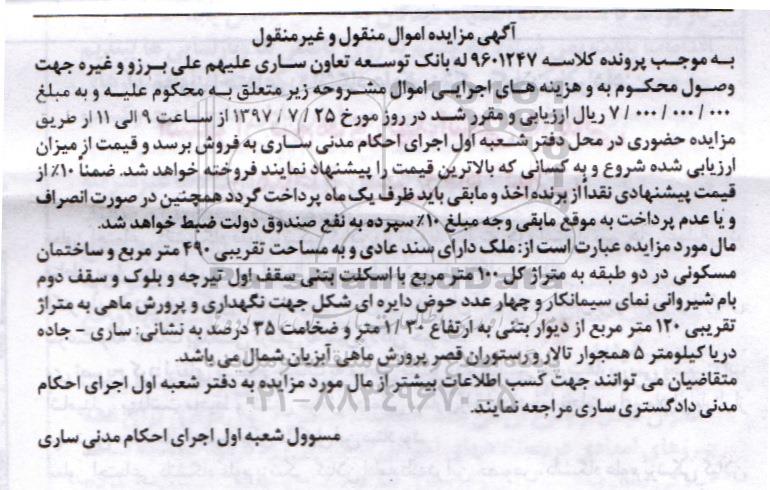 آگهی مزایده اموال منقول و غیرمنقول
به موجب پرونده کلاسه ۹۶۰۱۲۴۷ له بانک توسعه تعاون ساری علیهم علی برزو و غیره جهت
وصول محکوم به و هزینه های اجرایی اموال مشروحه زیر متعلق به محکوم علیه و به مبلغ
۷/۰۰۰/۰۰۰/۰۰۰ ریال ارزیابی و مقرر شد در روز مورخ ۱۳۹۷/۷/۲۵ از ساعت ۹ الی ۱۱ از طریق
مزایده حضوری در محل دفتر شعبه اول اجرای احکام مدنی ساری به فروش برسد و قیمت از میزان
ارزیابی شده شروع و به کسانی که بالاترین قیمت را پیشنهاد نمایند فروخته خواهد شد. ضمناً ۱۰٪ از
قیمت پیشنهادی نقداً از برنده اخذ و مابقی باید ظرف یک ماه پرداخت گردد همچنین در صورت انصراف
و یا عدم پرداخت به موقع مابقی وجه مبلغ ۱۰٪ سپرده به نفع صندوق دولت ضبط خواهد شد.
مال مورد مزایده عبارت است از: ملک دارای سند عادی و به مساحت تقریبی ۴۹۰ متر مربع و ساختمان
مسکونی در دو طبقه به متراژ کل ۱۰۰ متر مربع با اسکلت بتنی سقف اول تیرچه و بلوک و سقف دوم
بام شیروانی نمای سیمانکار و چهار عدد حوض دایره ای شکل جهت نگهداری و پرورش ماهی به متراژ
تقریبی ۱۲۰ متر مربع از دیوار بتنی به ارتفاع ۱/۳۰ متر و ضخامت ۳۵ درصد به نشانی: ساری - جاده
دریا کیلومتر ۵ همجوار تالار و رستوران قصر پرورش ماهی آبزیان شمال می باشد.
متقاضیان می توانند جهت کسب اطلاعات بیشتر از مال مورد مزایده به دفتر شعبه اول اجرای احکام
مدنی دادگستری ساری مراجعه نمایند.
مسوول شعبه اول اجرای احکام مدنی ساری
ParsNamadData
۰۲۱-۸۸۳۴۹۶۷۰-۵